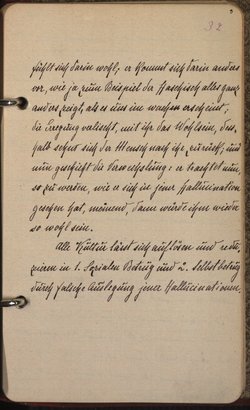 32
fühlt sich darin wohl, er kommt sich darin anders
vor, wie ja zum Beispiel der Haschisch alles ganz
anders zeigt, als es uns im wachen erscheint;
die Erregung erlischt, mit ihr das Wohlsein, des-
halb sehnt sich der Mensch nach ihr zurück, und
nun geschieht die Verwechslung: er trachtet nun,
so zu werden, wie er sich in jener Hallucination
gesehen hat, meinend, dann würde ihm wieder
so wohl sein.
Alle Kultur lässt sich auflösen und redu-
zieren in 1. Sozialen Betrug und 2. Selbstbetrug
durch falsche Auslegung jener Hallucinationen,